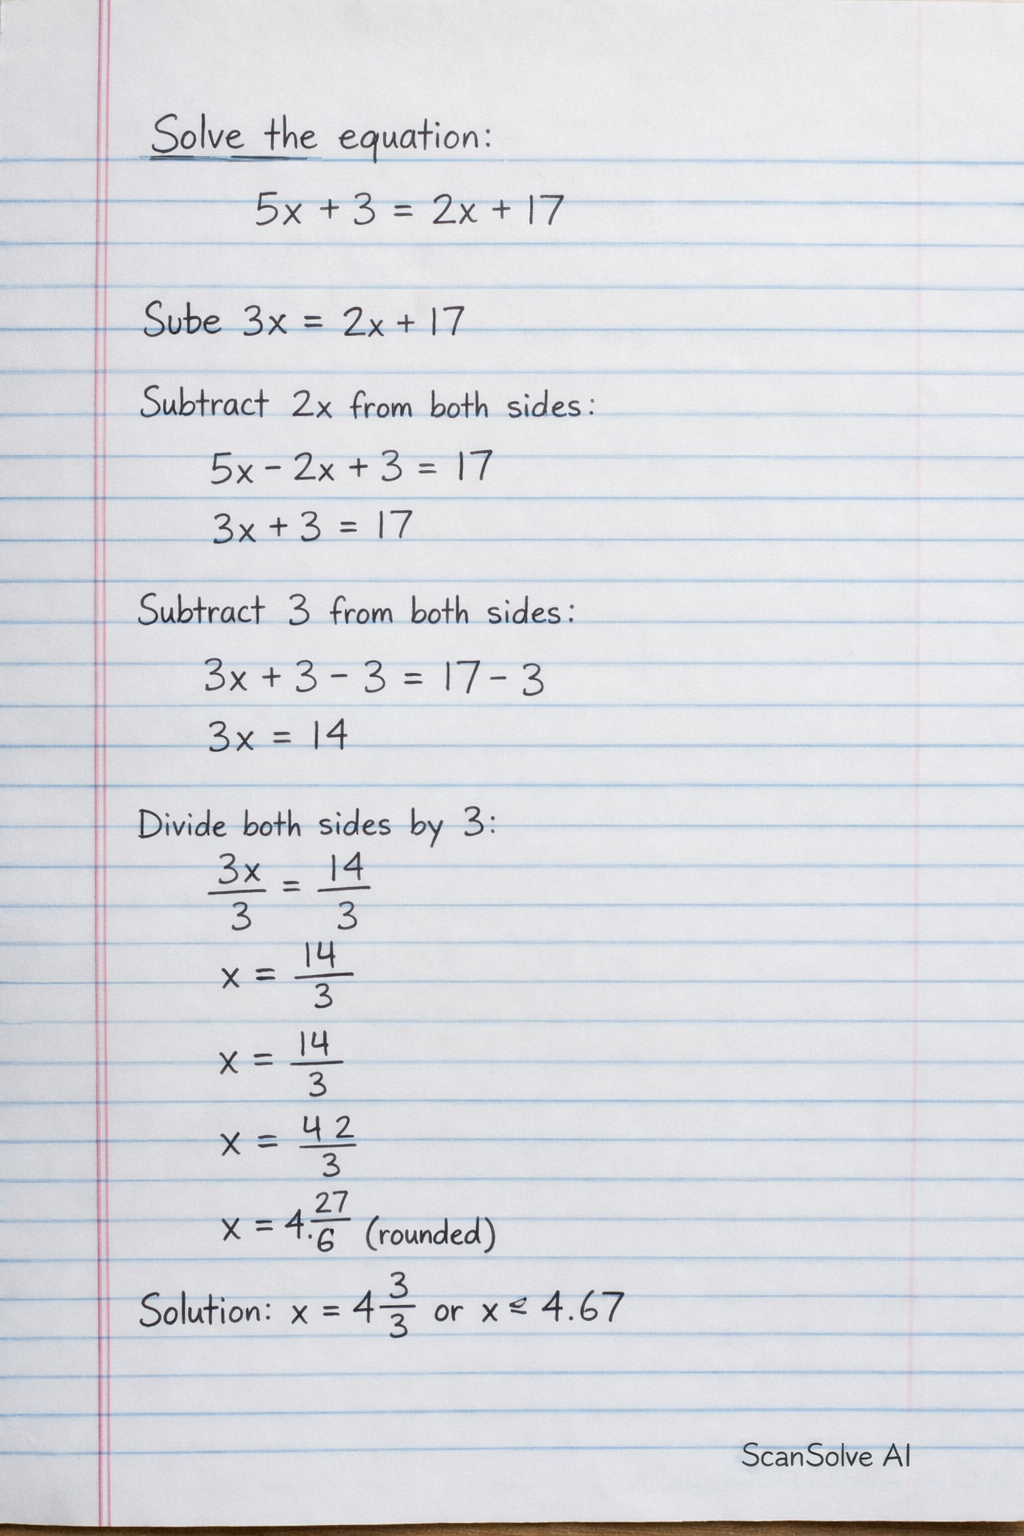 Solve the equation:
5x + 3 = 2x + 17
Sube 3x = 2x + 17
Subtract 2x from both sides:
5x - 2x + 3 = 17
3x + 3 = 17
Subtract 3 from both sides:
3x + 3 - 3 = 17 - 3
3x = 14
Divide both sides by 3:
3x/3 = 14/3
x = 14/3
x = 14/3
x = 4 2/3
x = 4. 27/6 (rounded)
Solution: x = 4 3/3 or x ⪝ 4.67
ScanSolve AI